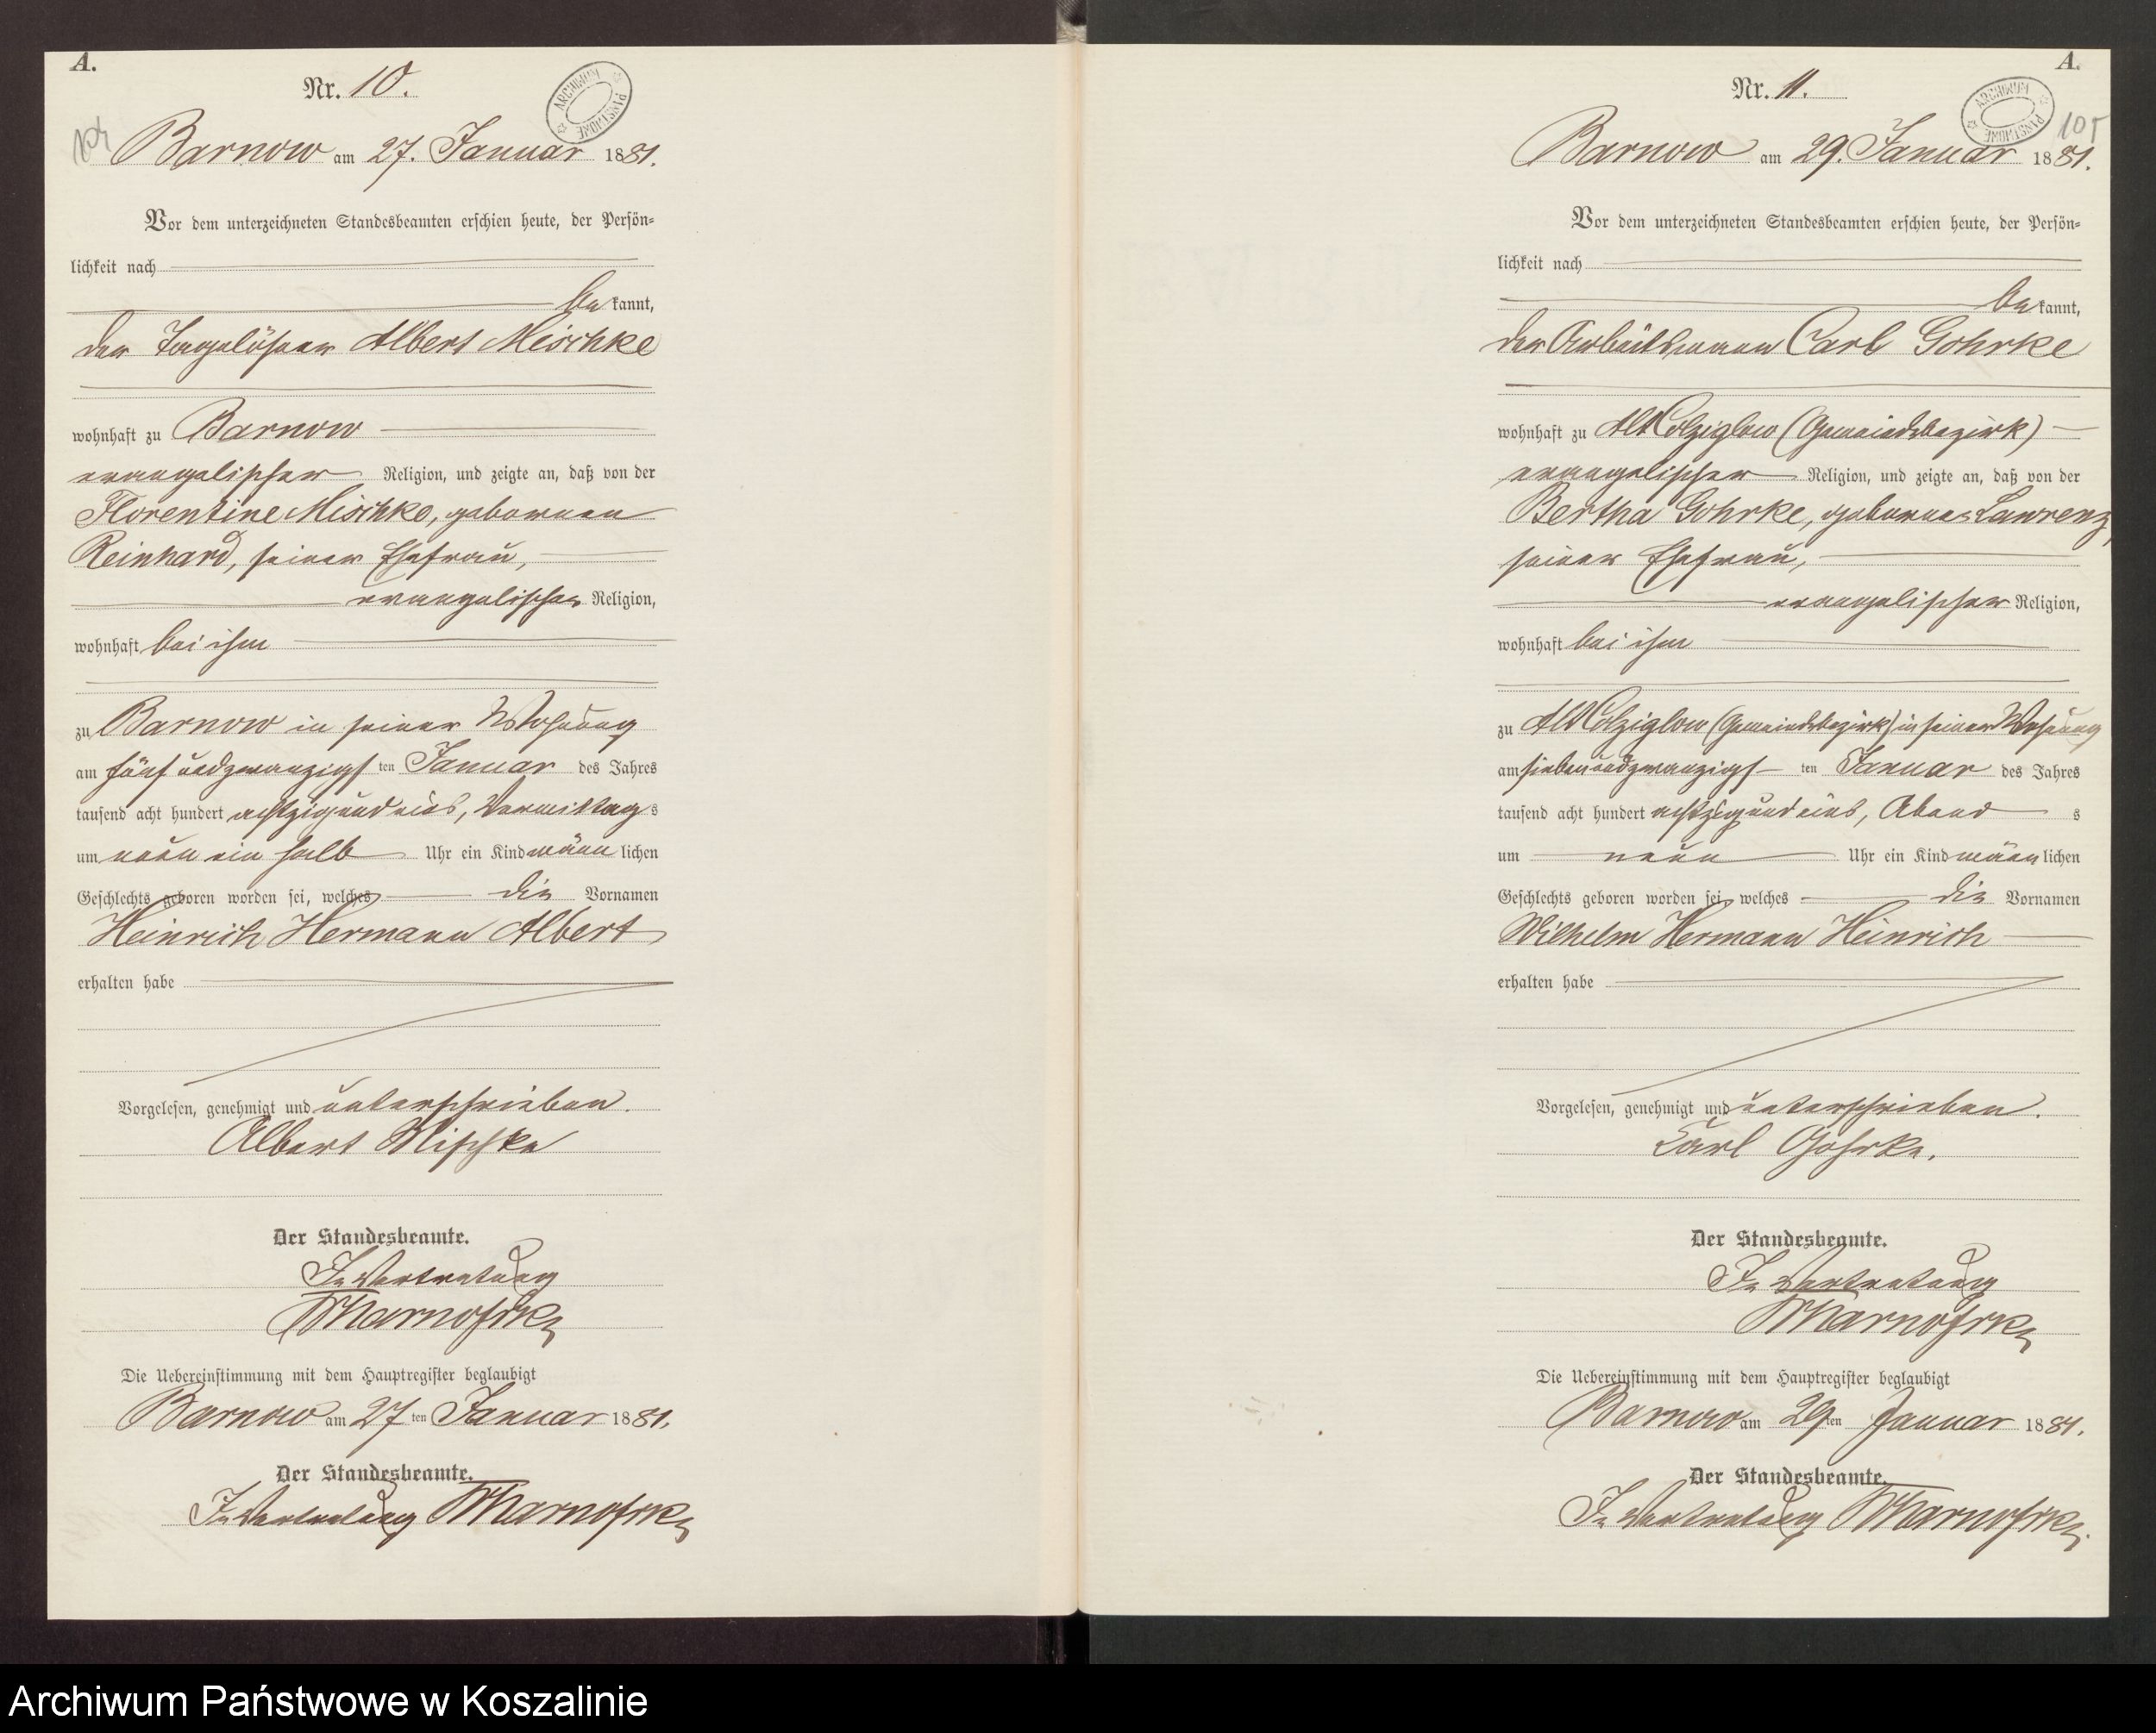 A.
Nr. 10.
ARCHIWUM PAŃSTWOWE
104
Barnow am 27. Januar 1881.
Vor dem unterzeichneten Standesbeamten erschien heute, der Persön-
lichkeit nach
be kannt,
der Tagelöhner Albert Mischke
wohnhaft zu Barnow
evangelischer Religion, und zeigte an, daß von der
Florentine Mischke, geborenen
Reinhard, seiner Ehefrau,
evangelischer Religion,
wohnhaft bei ihm
zu Barnow in seiner Wohnung
am fünf und zwanzigs ten Januar des Jahres
tausend acht hundert achtzig und eins, Vormittag s
um neun ein halb Uhr ein Kind männ lichen
Geschlechts geboren worden sei, welches die Vornamen
Heinrich Hermann Albert
erhalten habe
Vorgelesen, genehmigt und unterschrieben.
Albert Mischke
Der Standesbeamte.
In Vertretung
Die Uebereinstimmung mit dem Hauptregister beglaubigt
Barnow am 27 ten Januar 1881.
Der Standesbeamte.
In Vertretung
A.
Nr. 11.
ARCHIWUM PAŃSTWOWE
105
Barnow am 29. Januar 1881.
Vor dem unterzeichneten Standesbeamten erschien heute, der Persön-
lichkeit nach
be kannt,
der Arbeitsmann Carl Gohrke
wohnhaft zu Alt Colziglow (Gemeindebezirk)
evangelischer Religion, und zeigte an, daß von der
Bertha Gohrke, geborenen Lawrenz,
seiner Ehefrau,
evangelischer Religion,
wohnhaft bei ihm
zu Alt Colziglow (Gemeindebezirk) in seiner Wohnung
am sieben und zwanzigs ten Januar des Jahres
tausend acht hundert achtzig und eins, Abend s
um neun Uhr ein Kind männ lichen
Geschlechts geboren worden sei, welches die Vornamen
Wilhelm Hermann Heinrich
erhalten habe
Vorgelesen, genehmigt und unterschrieben.
Carl Gohrke.
Der Standesbeamte.
In Vertretung
Die Uebereinstimmung mit dem Hauptregister beglaubigt
Barnow am 29 ten Januar 1881.
Der Standesbeamte.
In Vertretung
Archiwum Państwowe w Koszalinie